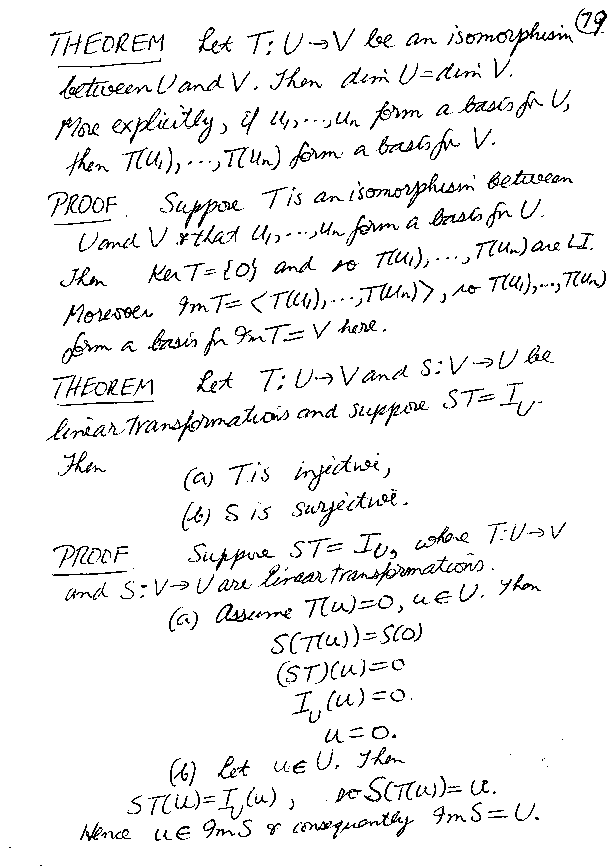 79
THEOREM Let T: U→V be an isomorphism
between U and V. Then dim U = dim V.
More explicitly, if u₁,...,uₙ form a basis for U,
then T(u₁),...,T(uₙ) form a basis for V.
PROOF. Suppose T is an isomorphism between
U and V & that u₁,...,uₙ form a basis for U.
Then Ker T = {0} and so T(u₁),...,T(uₙ) are LI.
Moreover Im T = <T(u₁),...,T(uₙ)>, so T(u₁),...,T(uₙ)
form a basis for Im T = V here.
THEOREM Let T: U→V and S: V→U be
linear transformations and suppose ST = I_U.
Then
(a) T is injective,
(b) S is surjective.
PROOF Suppose ST = I_U, where T: U→V
and S: V→U are linear transformations.
(a) Assume T(u)=0, u∈U. Then
S(T(u))=S(0)
(ST)(u)=0
I_U(u)=0.
u=0.
(b) Let u∈U. Then
ST(u)=I_U(u), so S(T(u))=u.
Hence u∈Im S & consequently Im S=U.